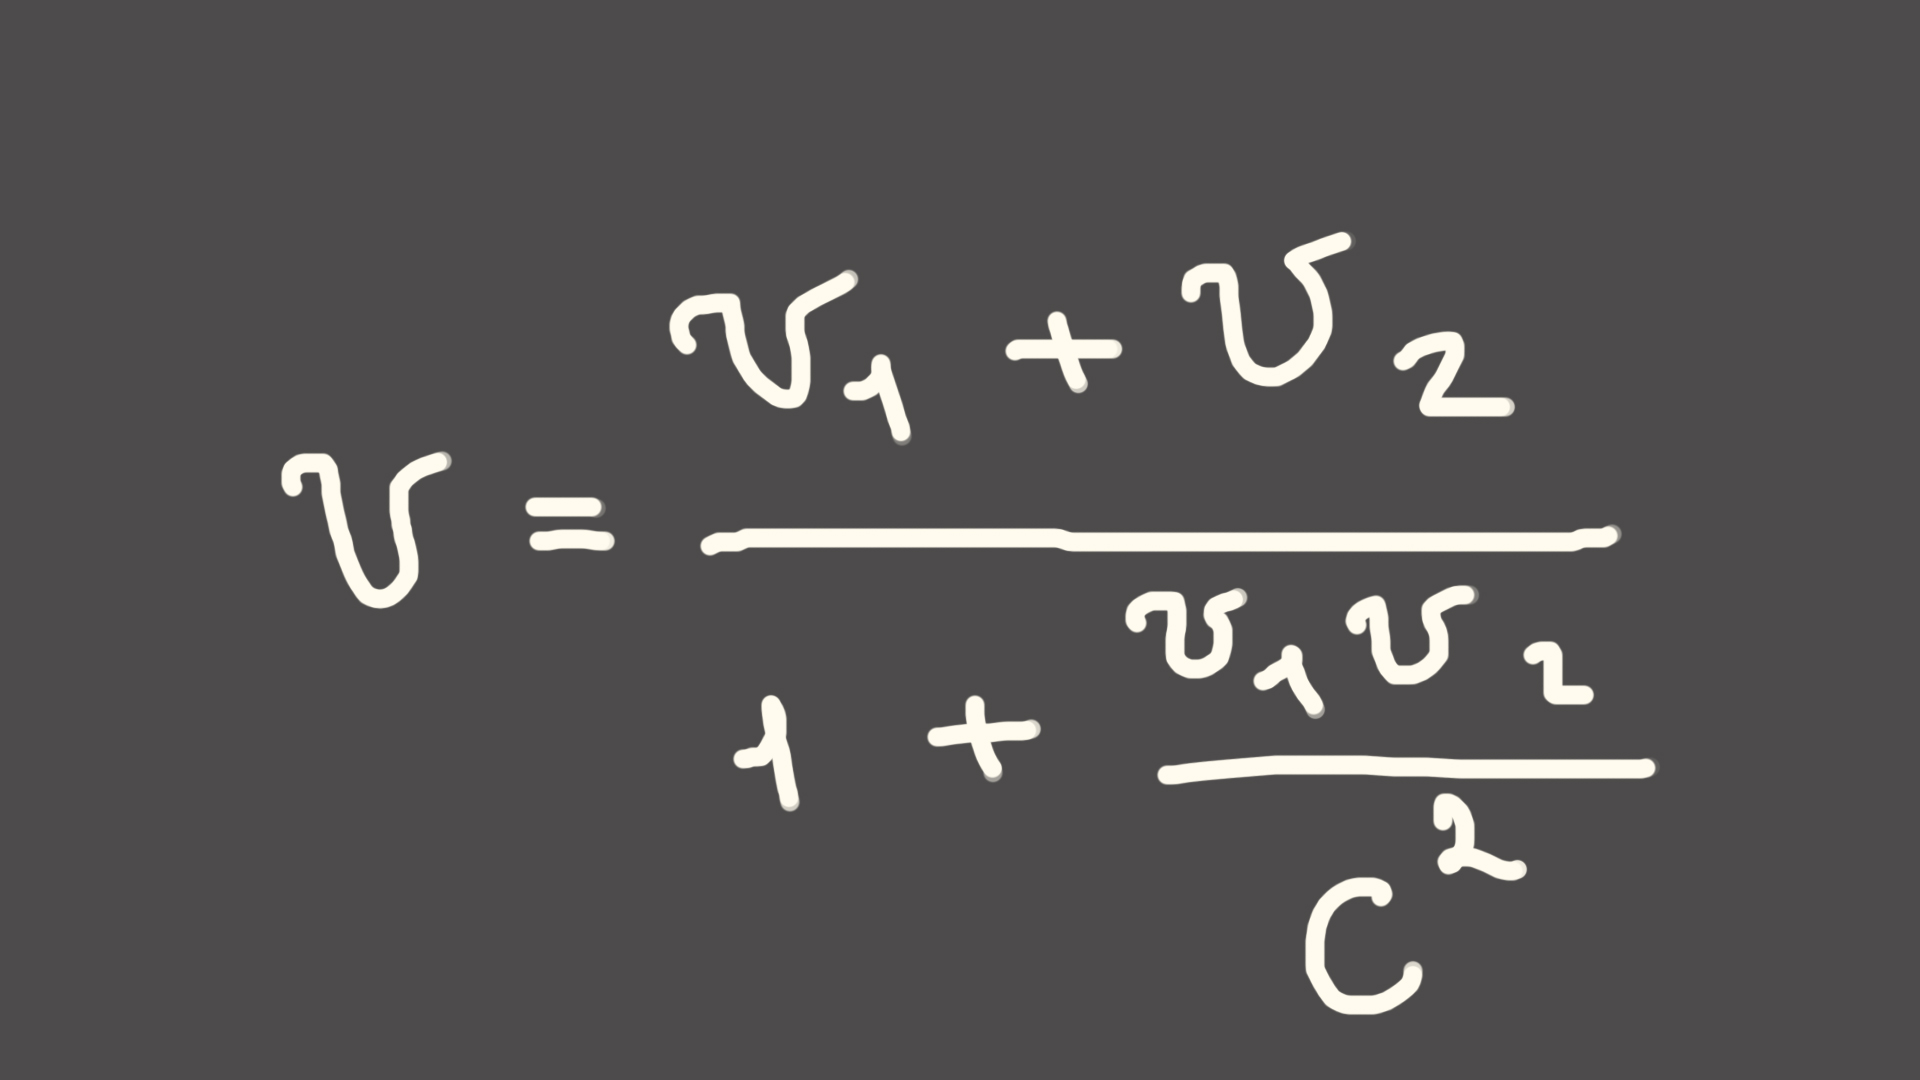 v = (v₁ + v₂) / (1 + (v₁ v₂) / c²)